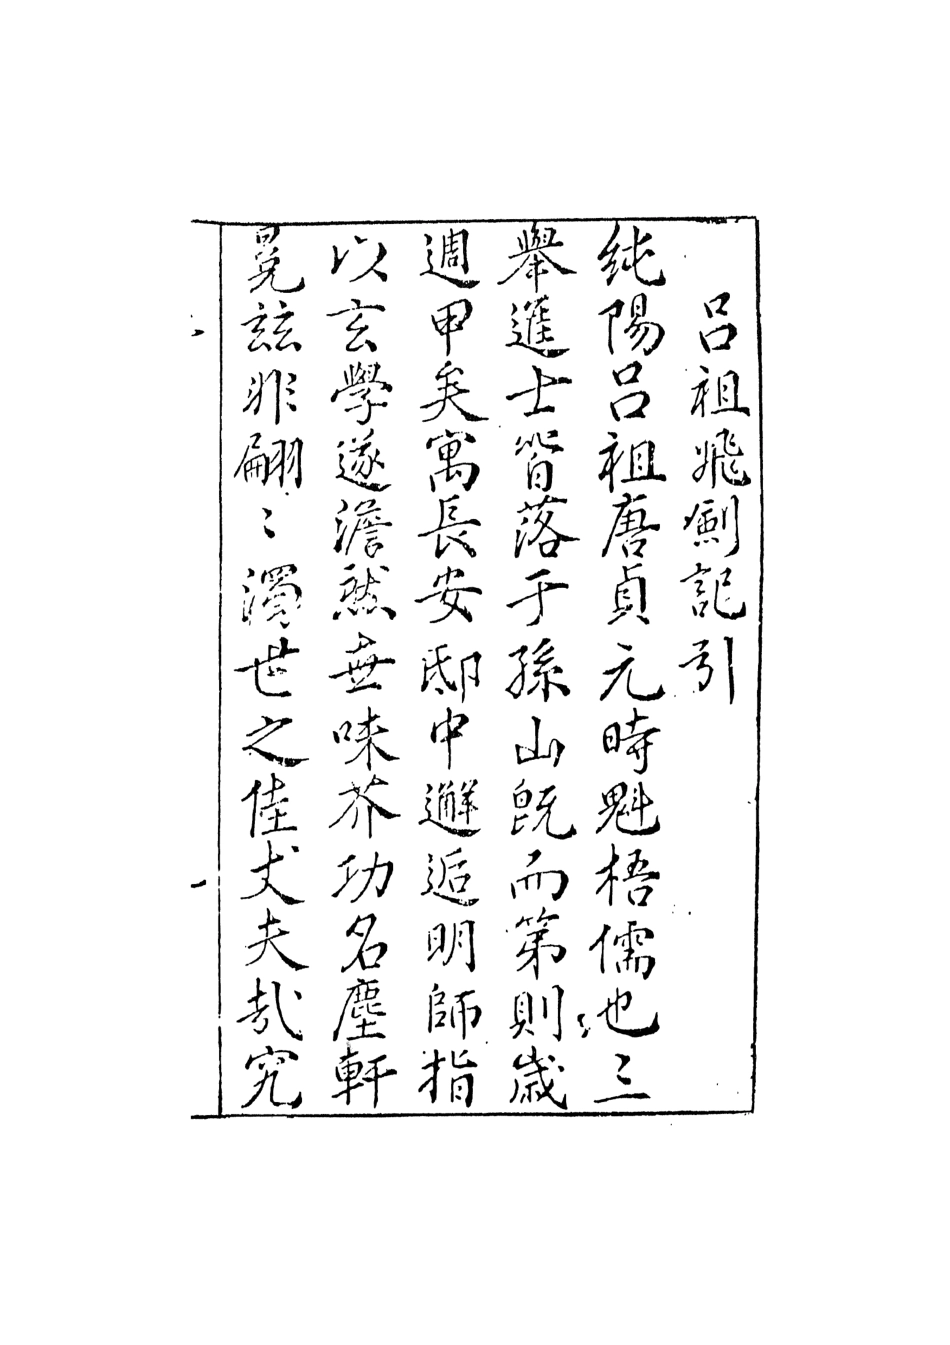 呂祖飛劍記引
純陽呂祖唐貞元時魁梧儒也三
舉進士皆落于孫山旣而第則歲
週甲矣寓長安邸中邂逅明師指
以玄學遂澹然無味芥功名塵軒
冕兹非翩〻濁世之佳丈夫哉究